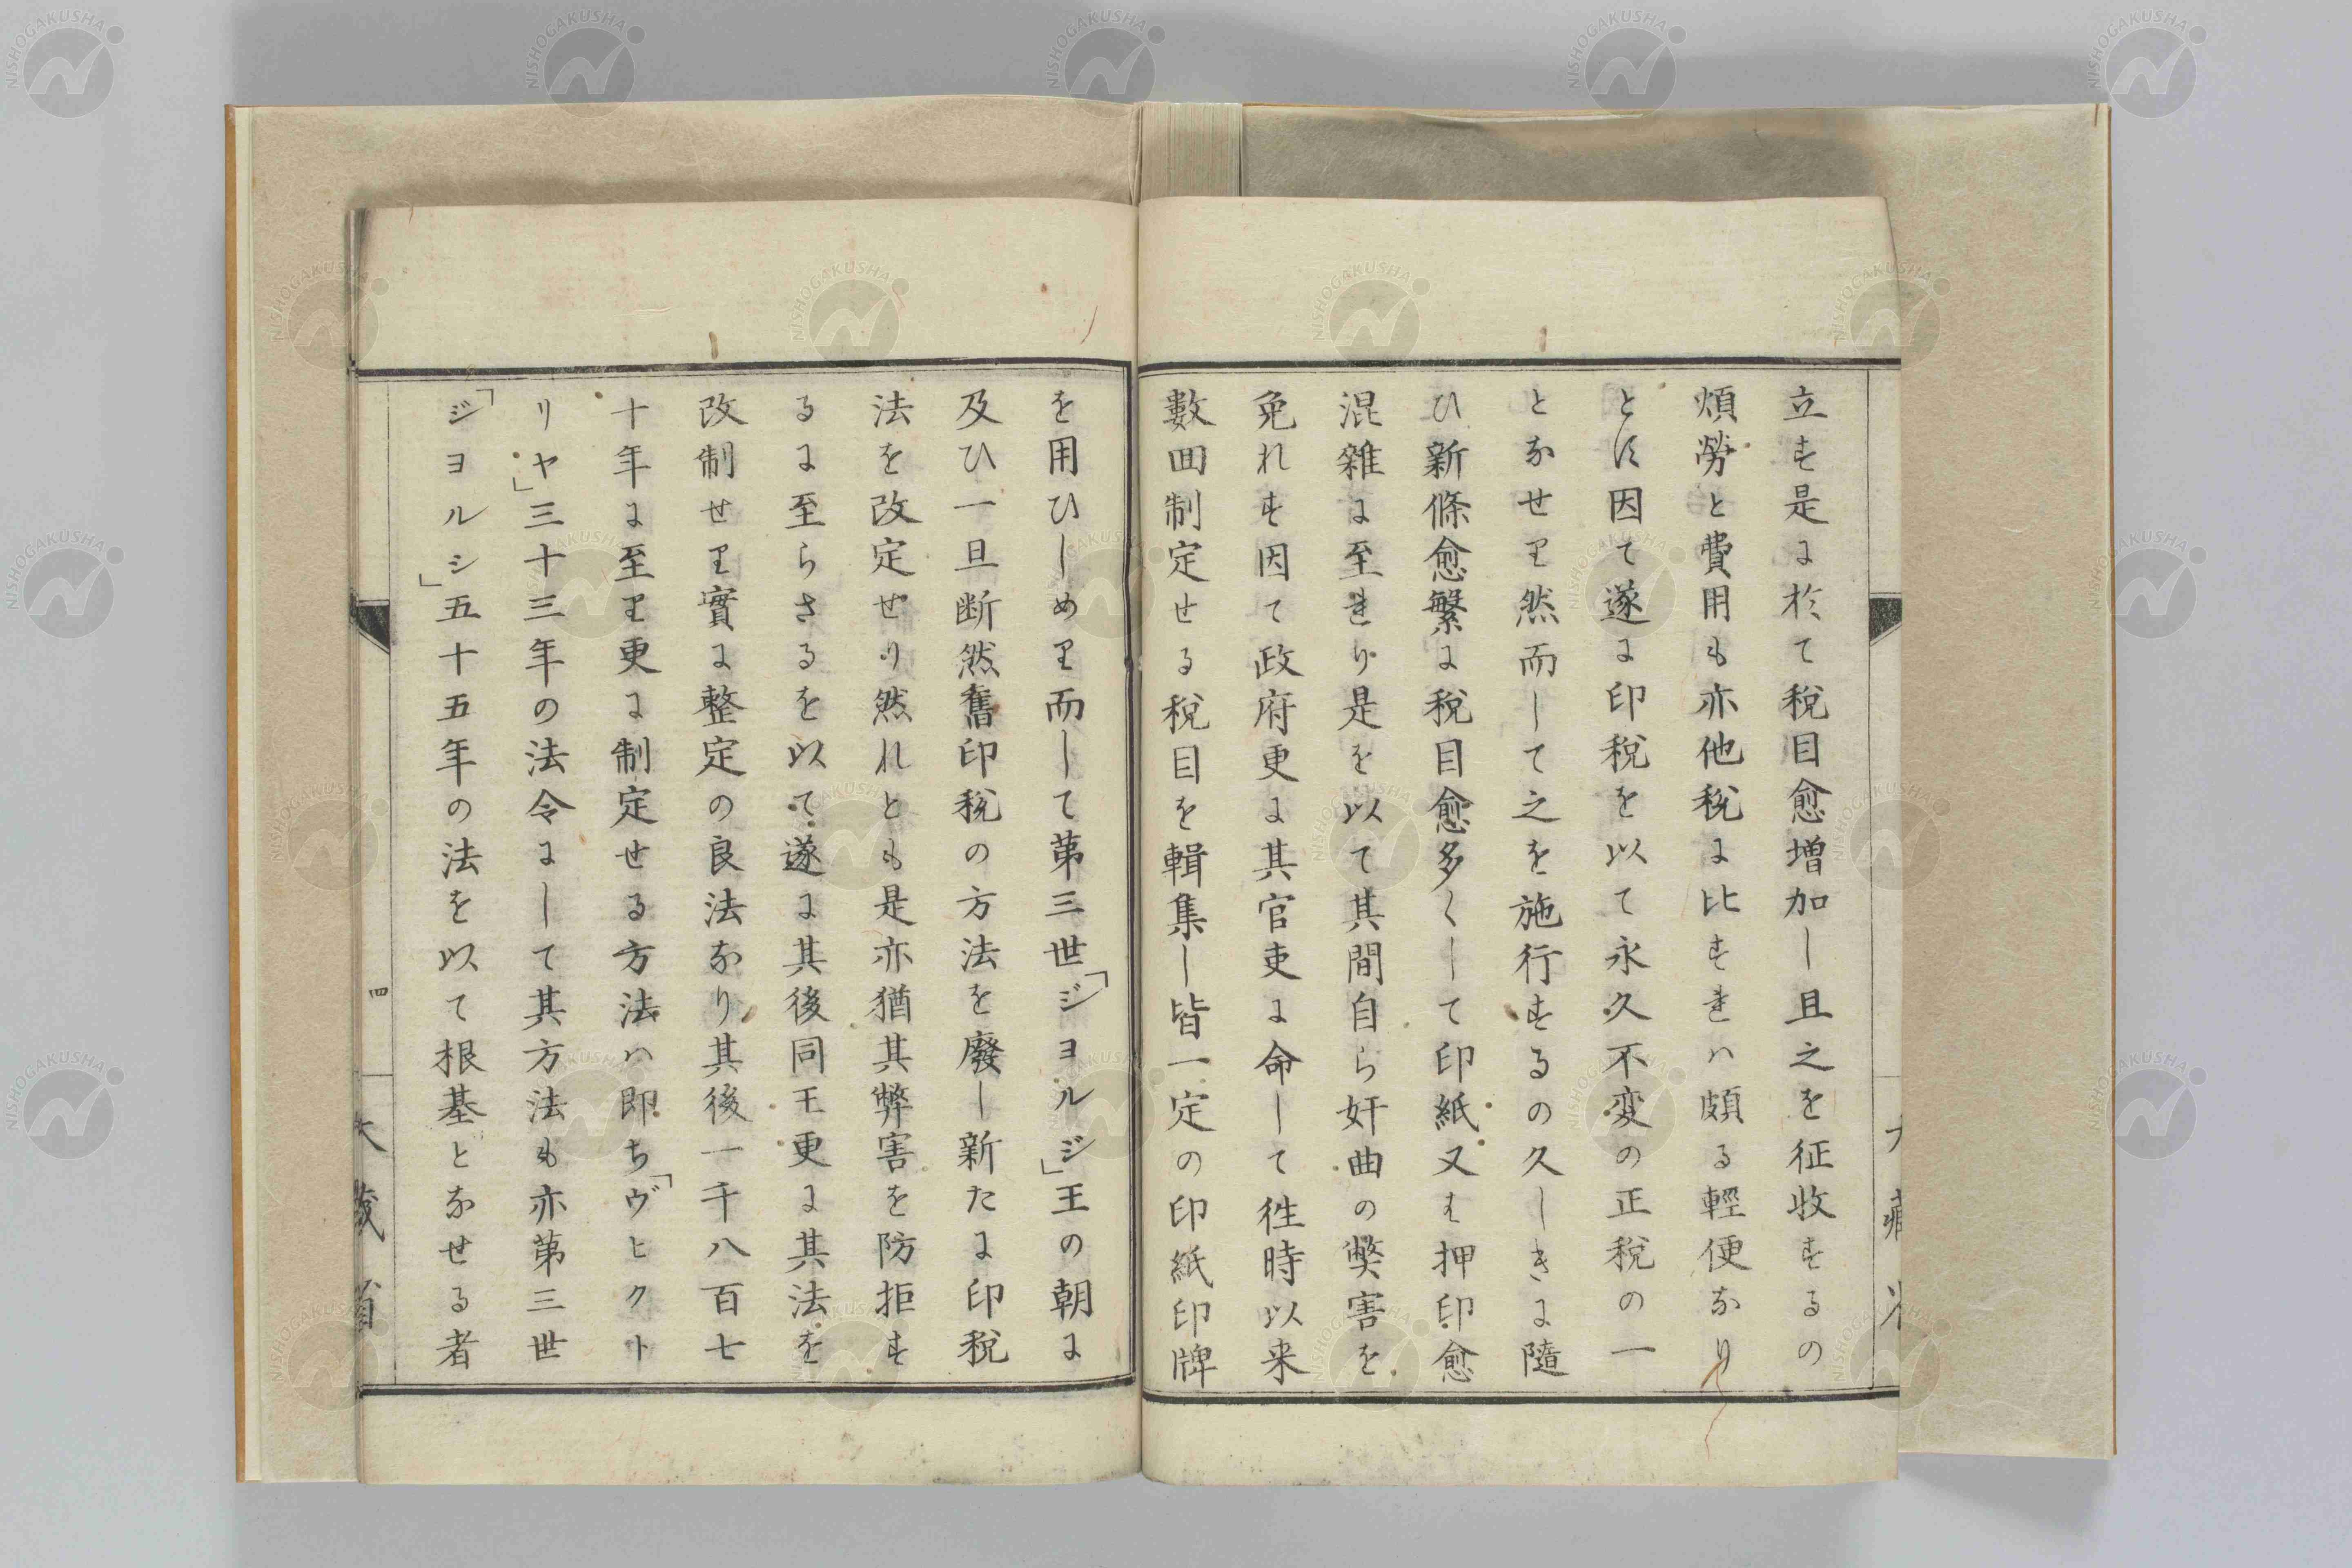 立す是に於て税目愈増加し且之を征收するの
煩勞と費用も亦他税に比すれハ頗る輕便なり
とす因て遂に印税を以て永久不変の正税の一
となせり然而して之を施行するの久しきに隨
ひ新條愈繁に税目愈多くして印紙又は押印愈
混雜に至れり是を以て其間自ら奸曲の弊害を
免れす因て政府更に其官吏に命して徃時以来
數囬制定せる税目を輯集し皆一定の印紙印牌
を用ひしめり而して第三世「ジヨルジ」王の朝に
及ひ一旦断然舊印税の方法を廢し新たに印税
法を改定せり然れとも是亦猶其弊害を防拒す
るに至らさるを以て遂に其後同王更に其法を
改制せり實に整定の良法なり其後一千八百七
十年に至り更に制定せる方法ハ即ち「ヴヒクト
リヤ」三十三年の法令にして其方法も亦第三世
「ジヨルジ」五十五年の法を以て根基となせる者
四
大藏省
NISHOGAKUSHA